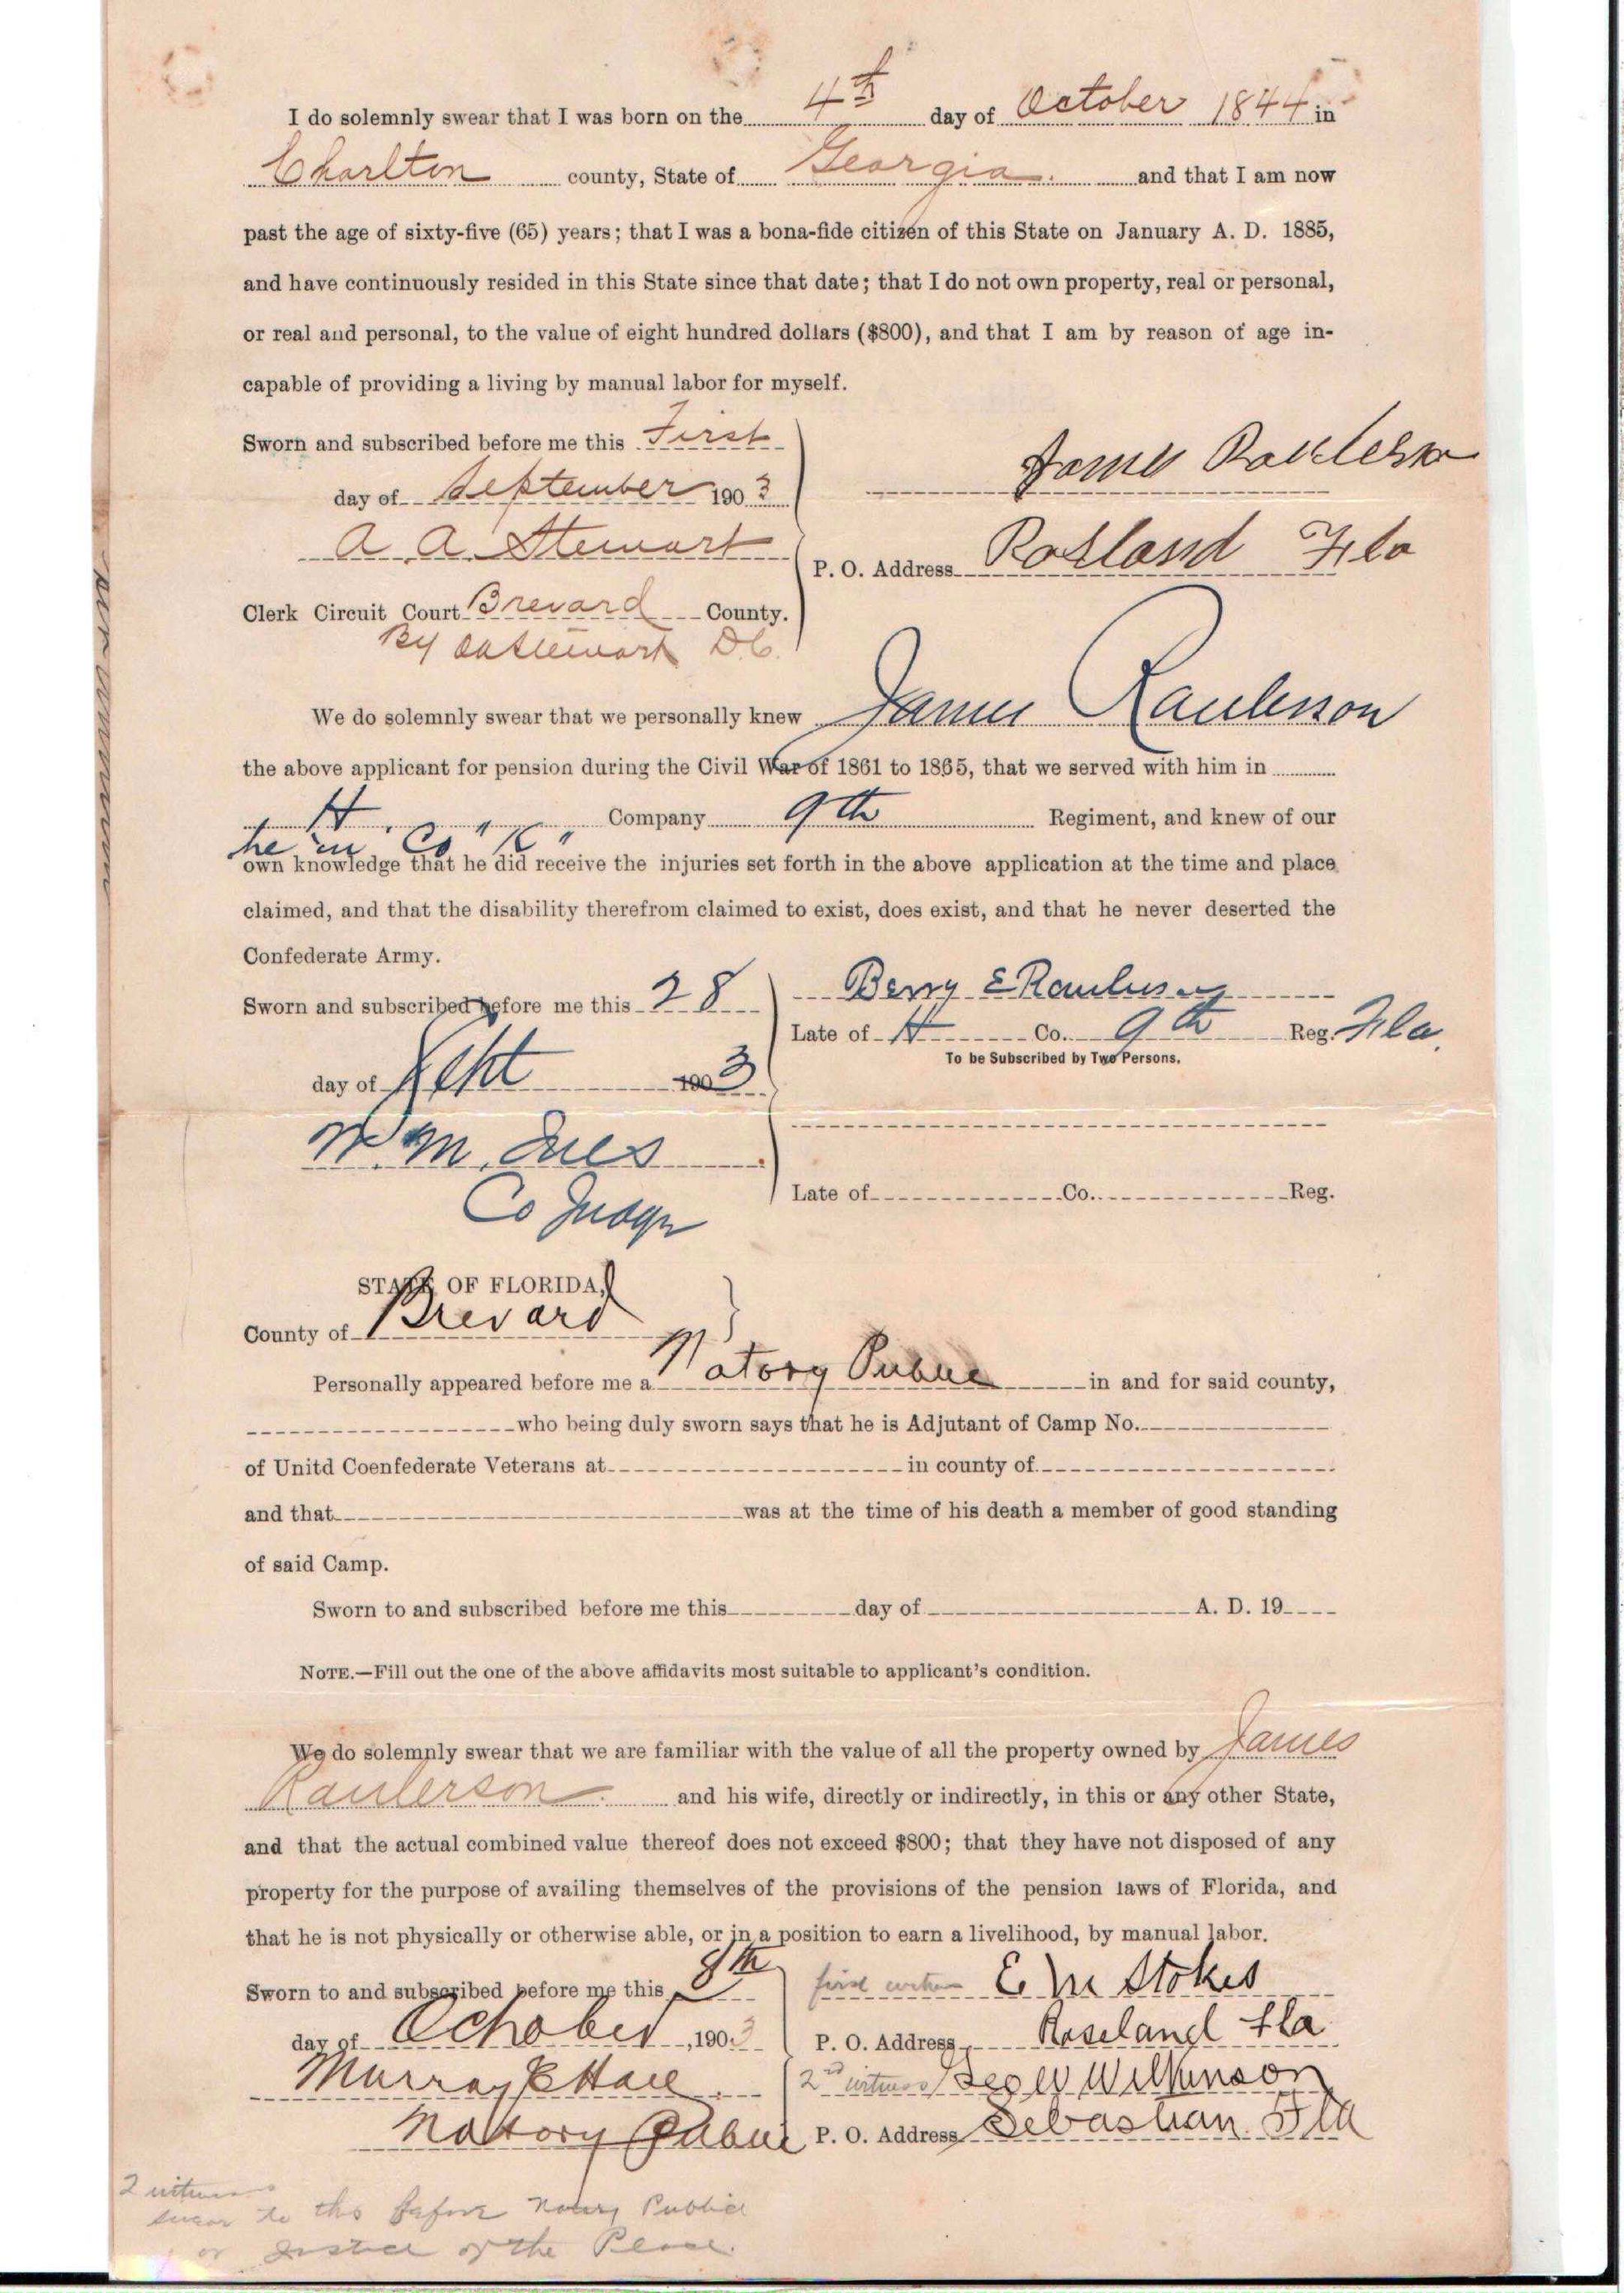 I do solemnly swear that I was born on the 4th day of October 1844 in
Charlton county, State of Georgia. and that I am now
past the age of sixty-five (65) years; that I was a bona-fide citizen of this State on January A. D. 1885,
and have continuously resided in this State since that date; that I do not own property, real or personal,
or real and personal, to the value of eight hundred dollars ($800), and that I am by reason of age in-
capable of providing a living by manual labor for myself.
Sworn and subscribed before me this First
day of September 1903
James Raulerson
A. A. Stewart
P. O. Address Rosland Fla
Clerk Circuit Court Brevard County.
By Stewart D.C.
We do solemnly swear that we personally knew James Raulerson
the above applicant for pension during the Civil War of 1861 to 1865, that we served with him in
H. Company 9th Regiment, and knew of our
he in Co "K"
own knowledge that he did receive the injuries set forth in the above application at the time and place
claimed, and that the disability therefrom claimed to exist, does exist, and that he never deserted the
Confederate Army.
Sworn and subscribed before me this 28
Berry E Raulerson
Late of H Co. 9th Reg. Fla.
To be Subscribed by Two Persons.
day of Sept 1903
M.
Co Judge
Late of Co. Reg.
STATE OF FLORIDA,
County of Brevard
Personally appeared before me a Notory Public in and for said county,
who being duly sworn says that he is Adjutant of Camp No.
of Unitd Coenfederate Veterans at in county of
and that was at the time of his death a member of good standing
of said Camp.
Sworn to and subscribed before me this day of A. D. 19
NOTE.—Fill out the one of the above affidavits most suitable to applicant's condition.
We do solemnly swear that we are familiar with the value of all the property owned by James
Raulerson. and his wife, directly or indirectly, in this or any other State,
and that the actual combined value thereof does not exceed $800; that they have not disposed of any
property for the purpose of availing themselves of the provisions of the pension laws of Florida, and
that he is not physically or otherwise able, or in a position to earn a livelihood, by manual labor.
Sworn to and subscribed before me this 8th
first witness E M Stokes
day of October, 1903
P. O. Address Roseland Fla
Murray E Hall
2nd witness Geo W Wilkinson
Notory Public
P. O. Address Sebastian. Fla
2 witness
swear to this before Notary Public
or Justice of the Peace.